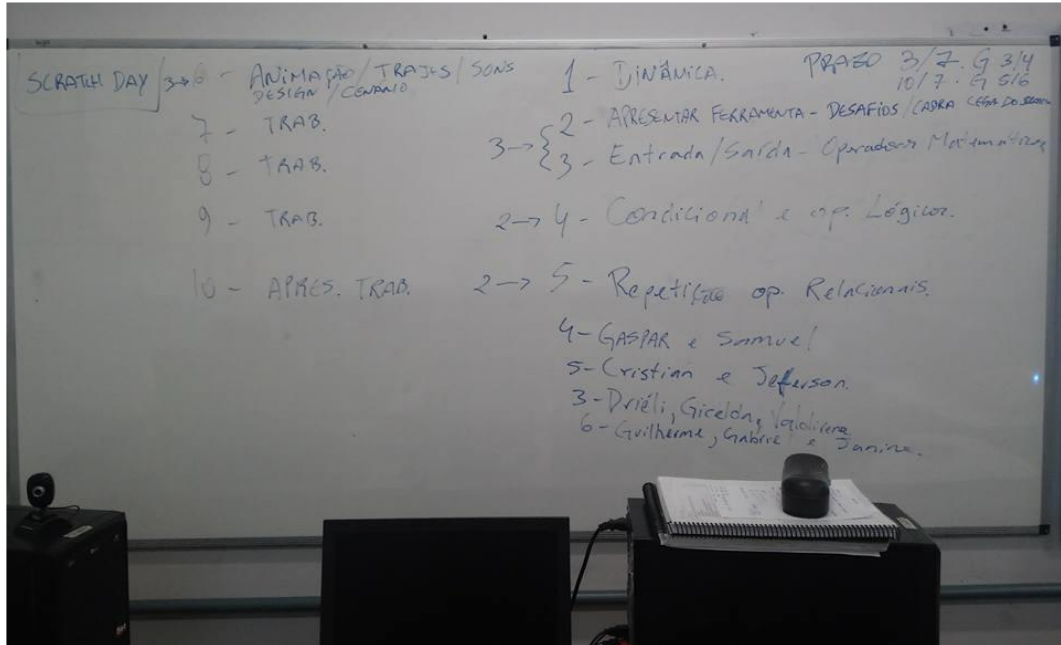 SCRATCH DAY
3→ 6 - ANIMAÇÃO / TRAJES / SONS
DESIGN / CENÁRIO
7 - TRAB.
8 - TRAB.
9 - TRAB.
10 - APRES. TRAB.
PRAZO 3/7. G 3/4
10/7. G 5/6
1 - DINÂMICA.
2 - APRESENTAR FERRAMENTA - DESAFIOS / CABRA CEGA DO
3→ { 3 - Entrada/Saída - Operadores Matemáticos
2→ 4 - Condicional e op. Lógicos.
2→ 5 - Repetição op. Relacionais.
4 - GASPAR e Samuel
5 - Cristian e Jeferson.
3 - Driéli, Gicelda, Valdirene
6 - Guilherme, Gabriel e Janine.